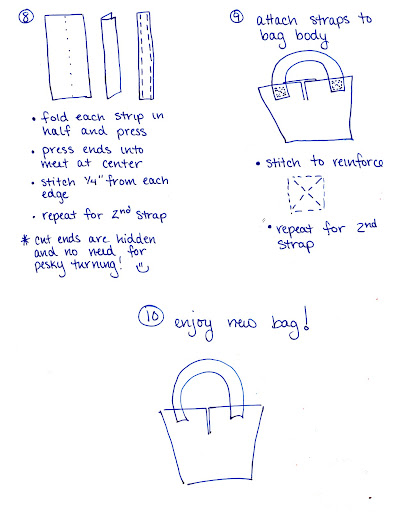 8
• fold each strip in
half and press
• press ends into
meet at center
• stitch 1/4" from each
edge
• repeat for 2nd strap
* cut ends are hidden
and no need for
pesky turning!
9 attach straps to
bag body
• stitch to reinforce
• repeat for 2nd
strap
10 enjoy new bag!